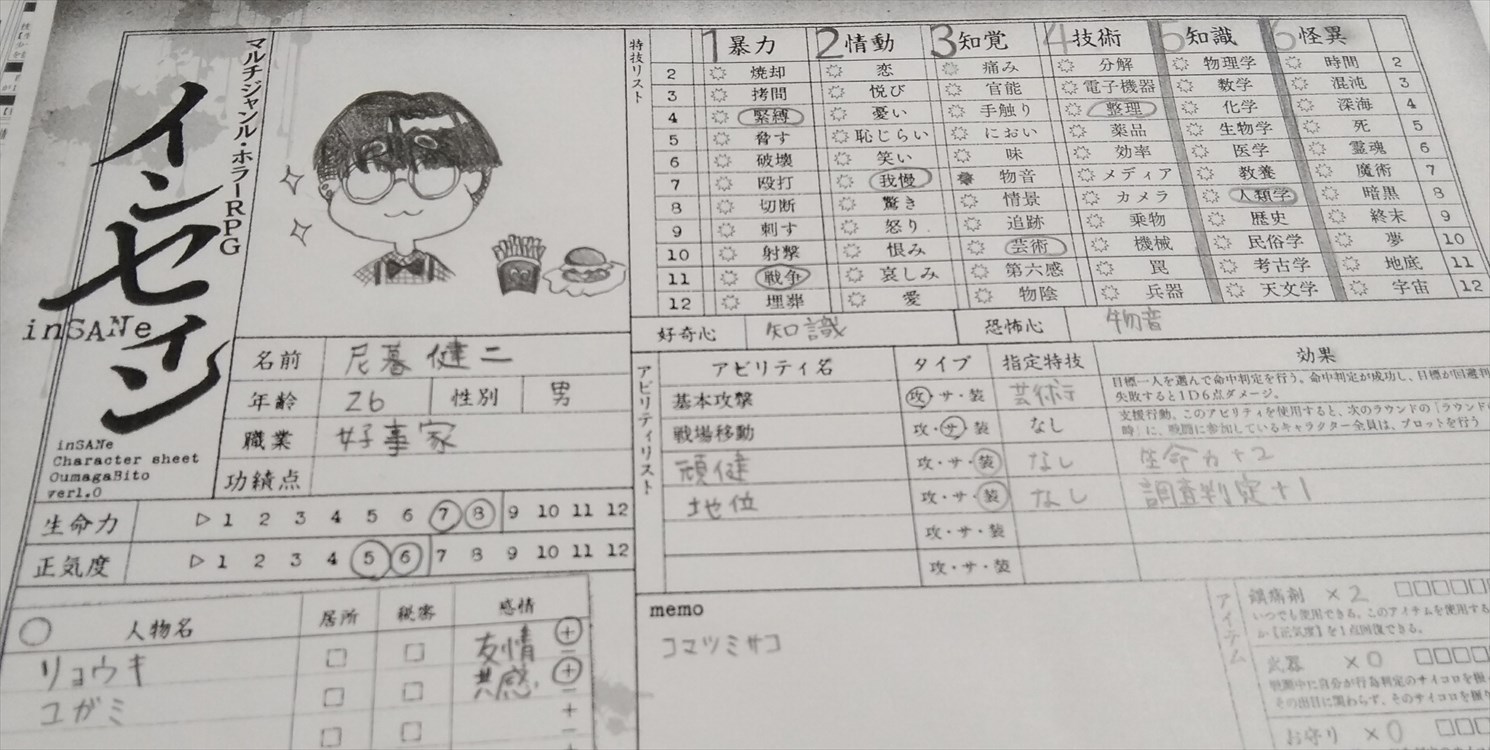 マルチジャンル・ホラーRPG
インセイン
inSANe
inSANe
Character sheet
OumagaBito
ver1.0
特技リスト
1 暴力 2 情動 3 知覚 4 技術 5 知識 6 怪異
2 焼却 恋 痛み 分解 物理学 時間 2
3 拷問 悦び 官能 電子機器 数学 混沌 3
4 緊縛 憂い 手触り 整理 化学 深海 4
5 脅す 恥じらい におい 薬品 生物学 死 5
6 破壊 笑い 味 効率 医学 霊魂 6
7 殴打 我慢 物音 メディア 教養 魔術 7
8 切断 驚き 情景 カメラ 人類学 暗黒 8
9 刺す 怒り 追跡 乗物 歴史 終末 9
10 射撃 恨み 芸術 機械 民俗学 夢 10
11 戦争 哀しみ 第六感 罠 考古学 地底 11
12 埋葬 愛 物陰 兵器 天文学 宇宙 12
好奇心 知識 恐怖心 物音
名前 尼暮健二
年齢 26 性別 男
職業 好事家
功績点
生命力 ▷ 1 2 3 4 5 6 7 8 9 10 11 12
正気度 ▷ 1 2 3 4 5 6 7 8 9 10 11 12
アビリティリスト
アビリティ名 タイプ 指定特技 効果
基本攻撃 攻・サ・装 芸術 目標一人を選んで命中判定を行う。命中判定が成功し、目標が回避判
失敗すると1D6点ダメージ。
戦場移動 攻・サ・装 なし 支援行動。このアビリティを使用すると、次のラウンドの「ラウンド
時」に、戦闘に参加しているキャラクター全員は、プロットを行う
頑健 攻・サ・装 なし 生命力+2
地位 攻・サ・装 なし 調査判定+1
攻・サ・装
攻・サ・装
人物名 居所 秘密 感情
リョウキ 友情 + −
ユガミ 共感 + −
+
memo
コマツミサコ
アイテム
鎮痛剤 ×2
いつでも使用できる。このアイテムを使用する
か【正気度】を1点回復できる。
武器 ×0
戦闘中に自分が行為判定のサイコロを振
その出目に関わらず、そのサイコロを
お守り ×0